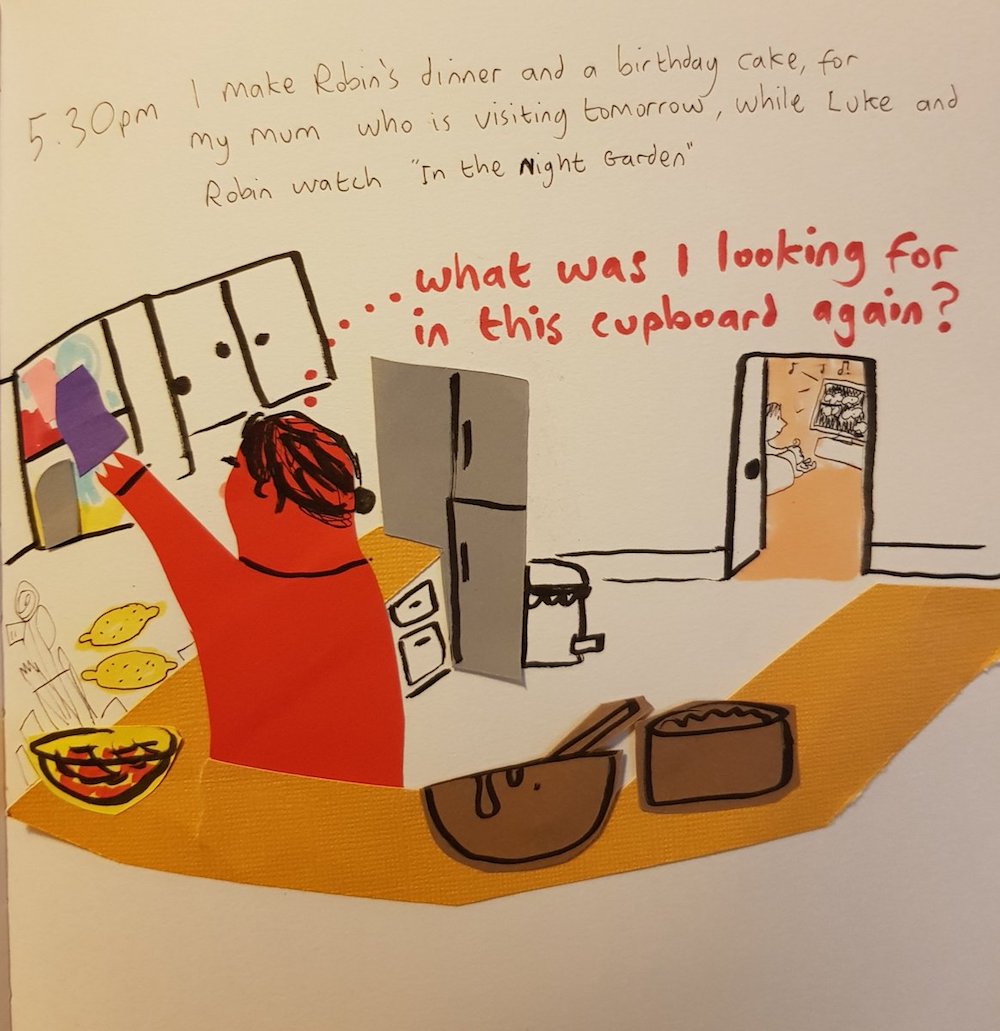 5.30pm I make Robin's dinner and a birthday cake, for
my mum who is visiting tomorrow, while Luke and
Robin watch "In the Night Garden"
...what was I looking for
in this cupboard again?